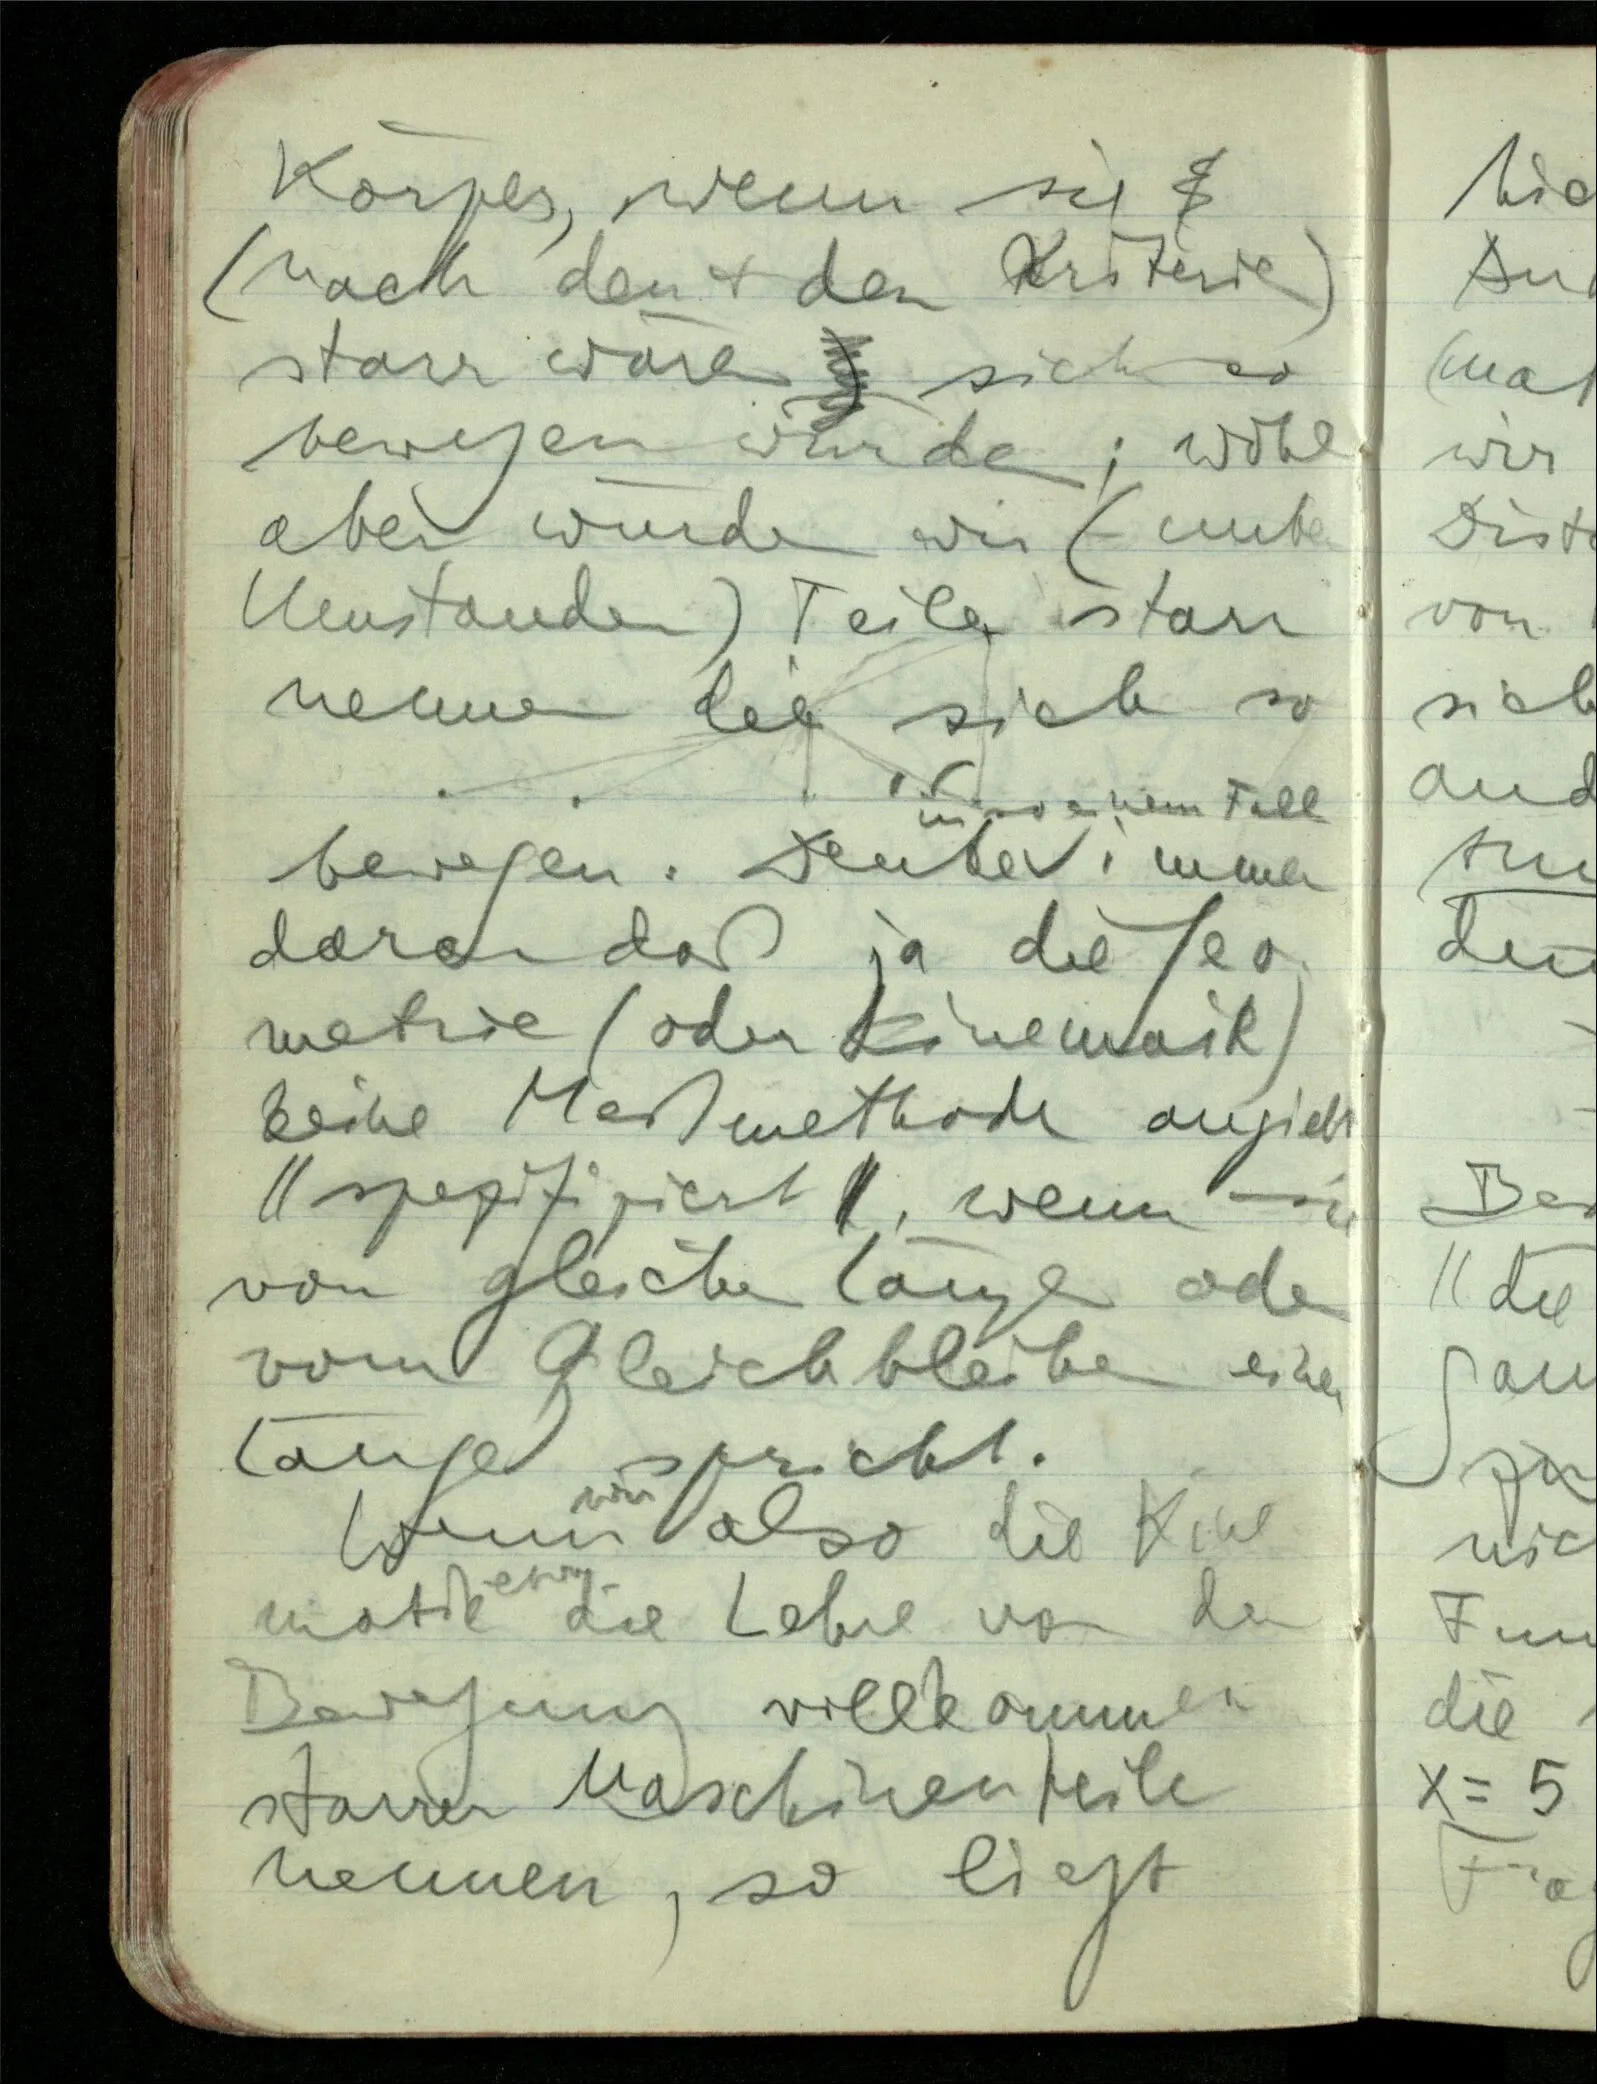 Körper, wenn sie
(nach den + den Kriterien)
starr wären sich so
bewegen würden; wohl
aber würden wir (unter
Umständen) Teile starr
nennen die sich so
in so einem Fall
bewegen. Denken immer
daran daß ja die Geo
metrie (oder Kinematik)
keine Meßmethode angiebt
// spezifiziert //, wenn sie
von gleicher Länge oder
vom Gleichbleiben einer
Länge spricht.
wir
Wenn also die Kine
etwa
matik die Lehre von der
Bewegung vollkommen
starrer Maschinenteile
nennen, so liegt
wir
von
sich
die
// die
die
x = 5